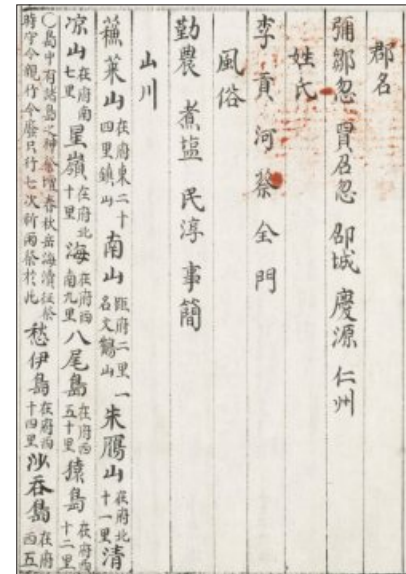 郡名
彌鄒忽 買召忽 邵城 慶源 仁州
姓氏
李 貢 河 蔡 全 門
風俗
勤農 煮塩 民淳 事簡
山川
蘓萊山 在府東二十四里鎮山 南山 距府二里一名文鶴山 朱鴈山 在府北十一里 清
凉山 在府南七里 星嶺 在府北十里 海 在府西南九里 八尾島 在府西五十里 猿島 在府西十二里
○島中有諸島之神祭壇春秋岳海瀆徃祭時守令親行今廢只行七次祈雨祭於此 愁伊島 在府西十四里 沙呑島 在府西五